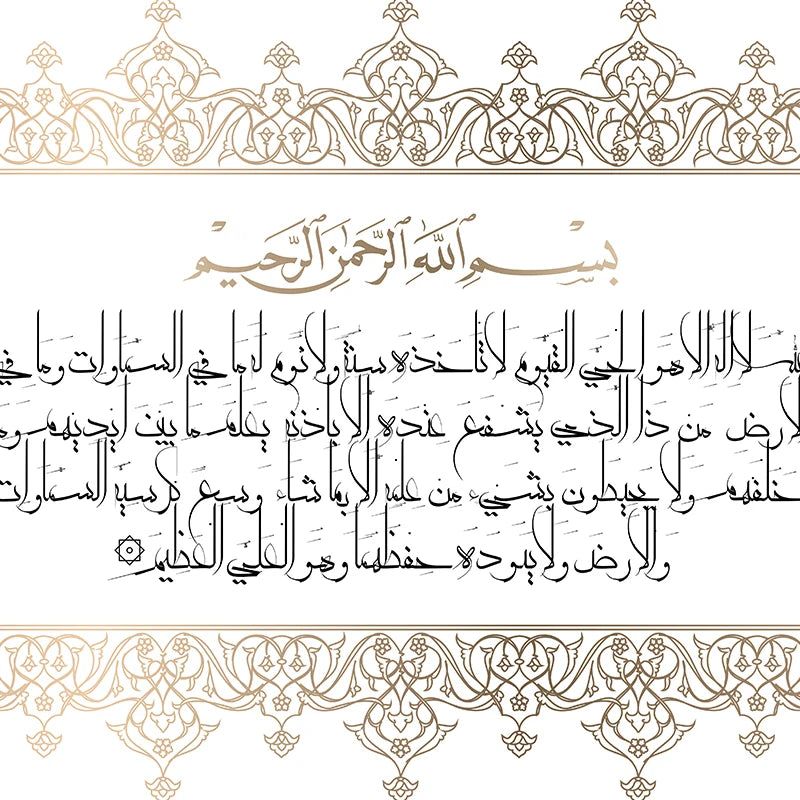 بِسْمِ ٱللَّهِ ٱلرَّحْمَٰنِ ٱلرَّحِيمِ
الله لا إله إلا هو الحي القيوم لا تأخذه سنة ولا نوم له ما في السماوات وما في
الأرض من ذا الذي يشفع عنده إلا بإذنه يعلم ما بين أيديهم وما
خلفهم ولا يحيطون بشيء من علمه إلا بما شاء وسع كرسيه السماوات
والأرض ولا يئوده حفظهما وهو العلي العظيم